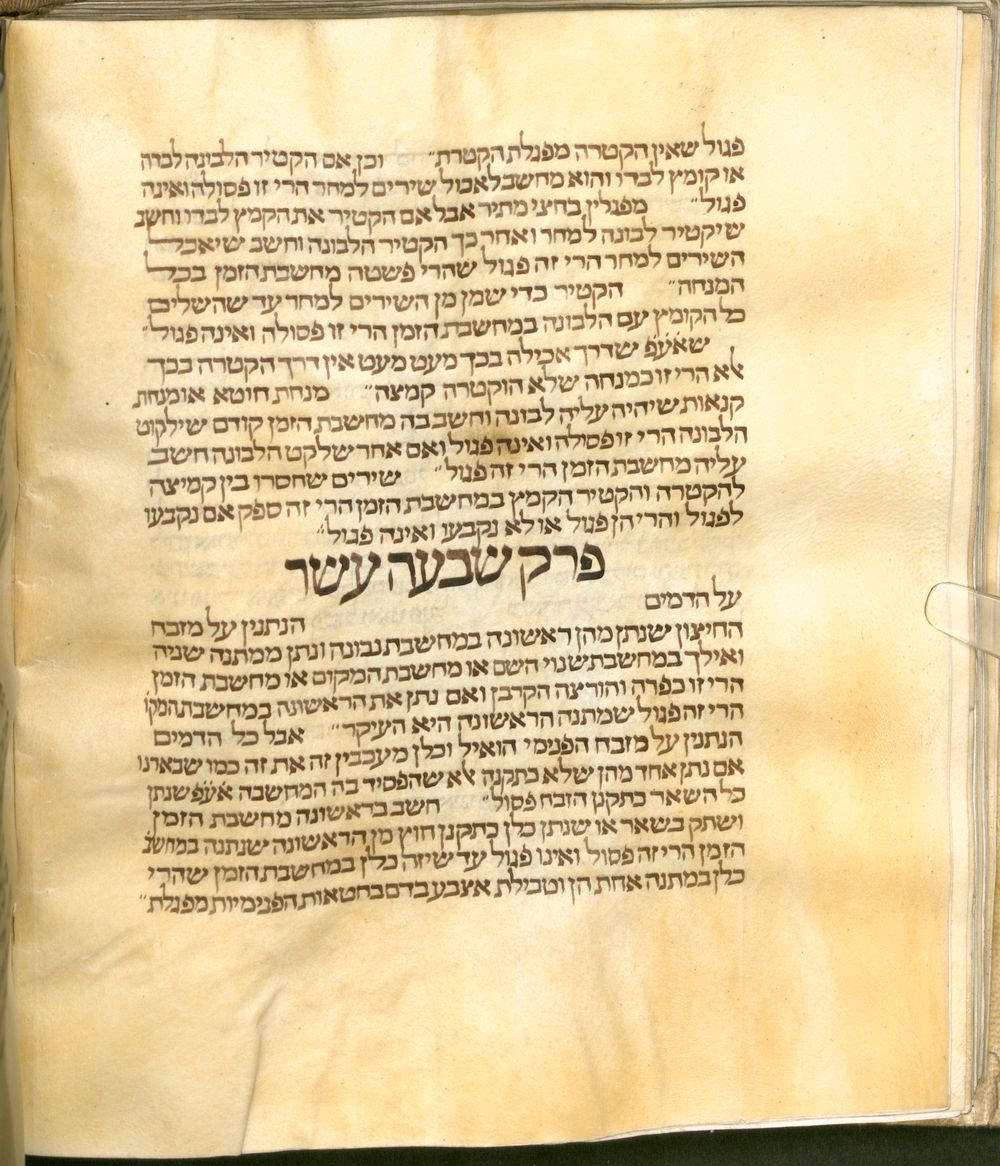 פגול שאין הקטרה מפגלת הקטרת״ וכן אם הקטיר הלבונה לברה
או קומץ לבדו והוא מחשב לאכול שירים למחר הרי זו פסולה ואינה
פגול״ מפגלין בחצי מתיר אבל אם הקטיר את הקמץ לבדו וחשב
שיקטיר לבונה למחר ואחר כך הקטיר הלבונה וחשב שיאכל
השירים למחר הרי זה פגול שהרי פשטה מחשבת הזמן בכל
המנחה״ הקטיר כדי שמן מן השירים למחר עד שהשלים
כל הקומץ עם הלבונה במחשבת הזמן הרי זו פסולה ואינה פגול״
שאעפ שדרך אכילה בכך מעט מעט אין דרך הקטרה בכך
לא הרי זו כמנחה שלא הוקטרה קמצה״ מנחת חוטא או מנחת
קנאות שיהיה עליה לבונה וחשב בה מחשבת הזמן קודם שילקוט
הלבונה הרי זו פסולה ואינה פגול ואם אחר שלקט הלבונה חשב
עליה מחשבת הזמן הרי זה פגול״ שירים שחסרו בין קמיצה
להקטרה והקטיר הקמץ במחשבת הזמן הרי זה ספק אם נקבעו
לפגול והרי הן פגול או לא נקבעו ואינה פגול״
פרק שבעה עשר
על הדמים
הנתנין על מזבח
החיצון שנתן מהן ראשונה במחשבת נבונה ונתן ממתנה שניה
ואילך במחשבת שנוי השם או מחשבת המקום או מחשבת הזמן
הרי זו כפרה והורצה הקרבן ואם נתן את הראשונה במחשבת המקו
הרי זה פגול שמתנה הראשונה היא העיקר״ אבל כל הדמים
הנתנין על מזבח הפנימי הואיל וכלן מעכבין זה את זה כמו שבארנו
אם נתן אחד מהן שלא כתקנה לא שהפסיד בה המחשבה אעפ שנתן
כל השאר כתקנן הזבח פסול״ חשב בראשונה מחשבת הזמן
ושתק בשאר או שנתן כלן כתקנן חוץ מן הראשונה שנתנה במחשב
הזמן הרי זה פסול ואינו פגול עד שיזה כלן במחשבת הזמן שהרי
כלן במתנה אחת הן וטבילת אצבע בדם בחטאות הפנימיות מפגלת״